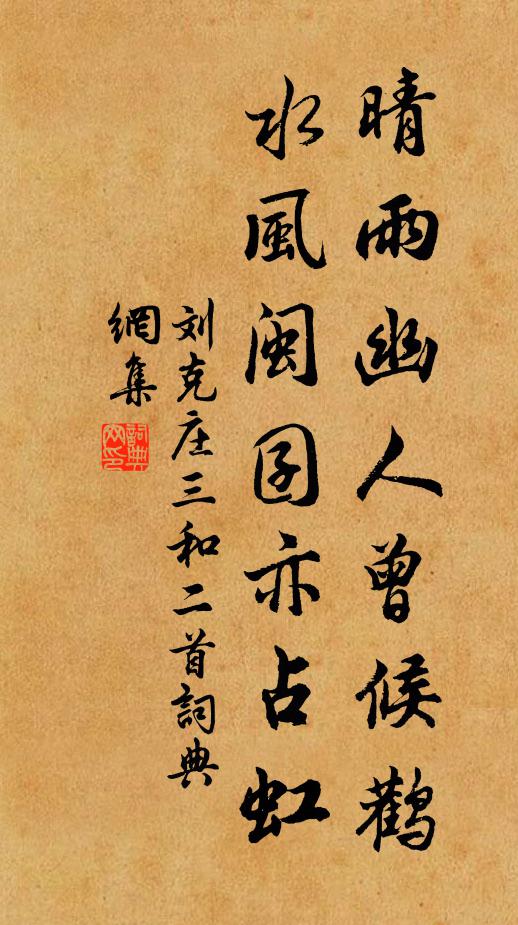 晴雨幽人曾候鸛
水風閩囝亦占虹
刘克庄三和二首詞典
網集
詞典
网印